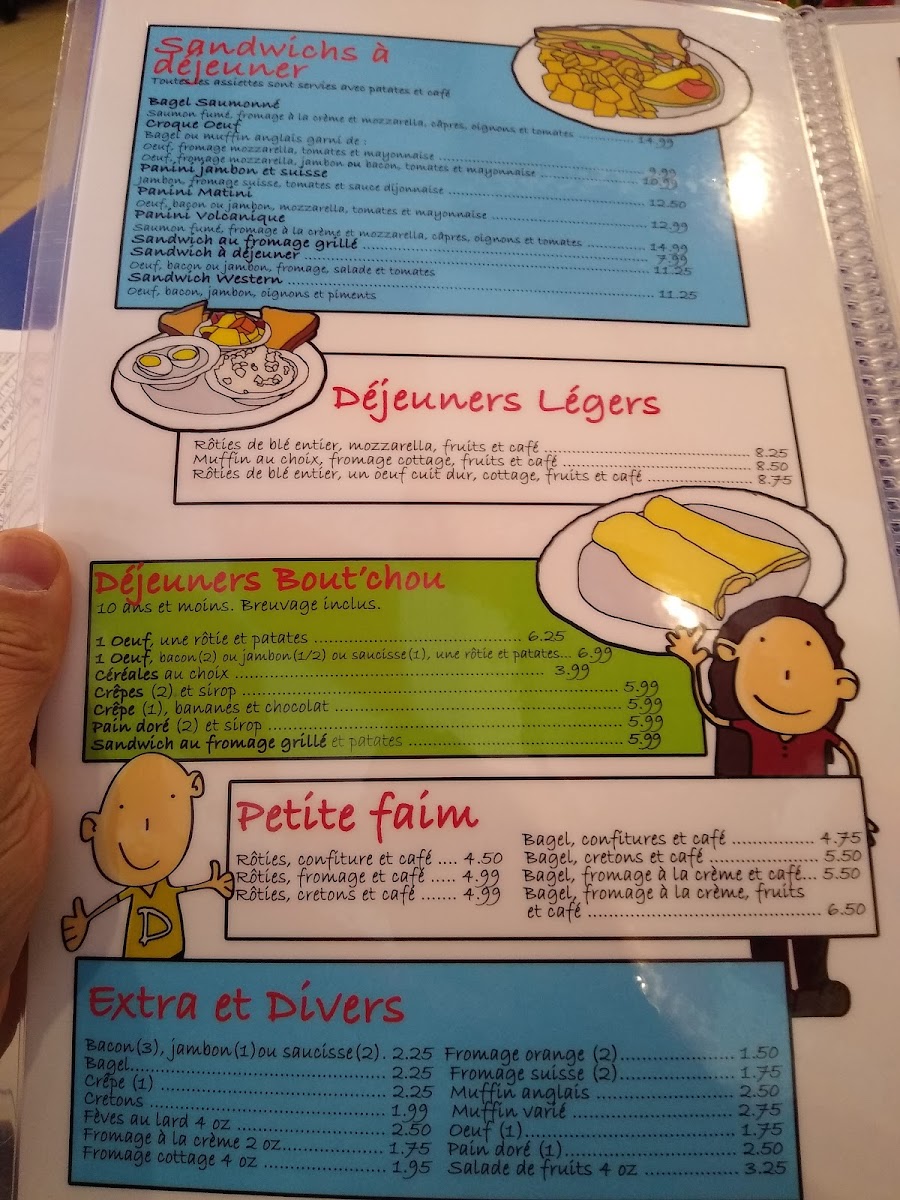 Sandwichs à
déjeuner
Toutes les assiettes sont servies avec patates et café
Bagel Saumonné
Saumon fumé, fromage à la crème et mozzarella, câpres, oignons et tomates ............... 14.99
Croque Oeuf
Bagel ou muffin anglais garni de :
Oeuf, fromage mozzarella, tomates et mayonnaise ............... 9.99
Oeuf, fromage mozzarella, jambon ou bacon, tomates et mayonnaise ............... 10.99
Panini Jambon et suisse
Jambon, fromage suisse, tomates et sauce dijonnaise ............... 12.50
Panini Matini
Oeuf, bacon ou jambon, mozzarella, tomates et mayonnaise ............... 12.99
Panini Volcanique
Saumon fumé, fromage à la crème et mozzarella, câpres, oignons et tomates ............... 14.99
Sandwich au fromage grillé ............... 7.99
Sandwich à déjeuner ............... 11.25
Oeuf, bacon ou jambon, fromage, salade et tomates
Sandwich Western ............... 11.25
Oeuf, bacon, jambon, oignons et piments
Déjeuners Légers
Rôties de blé entier, mozzarella, fruits et café ............... 8.25
Muffin au choix, fromage cottage, fruits et café ............... 8.50
Rôties de blé entier, un oeuf cuit dur, cottage, fruits et café ............... 8.75
Déjeuners Bout'chou
10 ans et moins. Breuvage inclus.
1 Oeuf, une rôtie et patates ............... 6.25
1 Oeuf, bacon(2) ou jambon(1/2) ou saucisse(1), une rôtie et patates... 6.99
Céréales au choix ............... 3.99
Crêpes (2) et sirop ............... 5.99
Crêpe (1), bananes et chocolat ............... 5.99
Pain doré (2) et sirop ............... 5.99
Sandwich au fromage grillé et patates ............... 5.99
Petite faim
Rôties, confiture et café .... 4.50
Rôties, fromage et café ..... 4.99
Rôties, cretons et café ....... 4.99
Bagel, confitures et café ............... 4.75
Bagel, cretons et café ............... 5.50
Bagel, fromage à la crème et café... 5.50
Bagel, fromage à la crème, fruits
et café ............... 6.50
D
Extra et Divers
Bacon(3), jambon(1) ou saucisse(2) . 2.25
Bagel ............... 2.25
Crêpe (1) ............... 2.25
Cretons ............... 1.99
Fèves au lard 4 oz ............... 2.50
Fromage à la crème 2 oz ............... 1.75
Fromage cottage 4 oz ............... 1.95
Fromage orange (2) ............... 1.50
Fromage suisse (2) ............... 1.75
Muffin anglais ............... 2.50
Muffin varié ............... 2.75
Oeuf (1) ............... 1.75
Pain doré (1) ............... 2.50
Salade de fruits 4 oz ............... 3.25